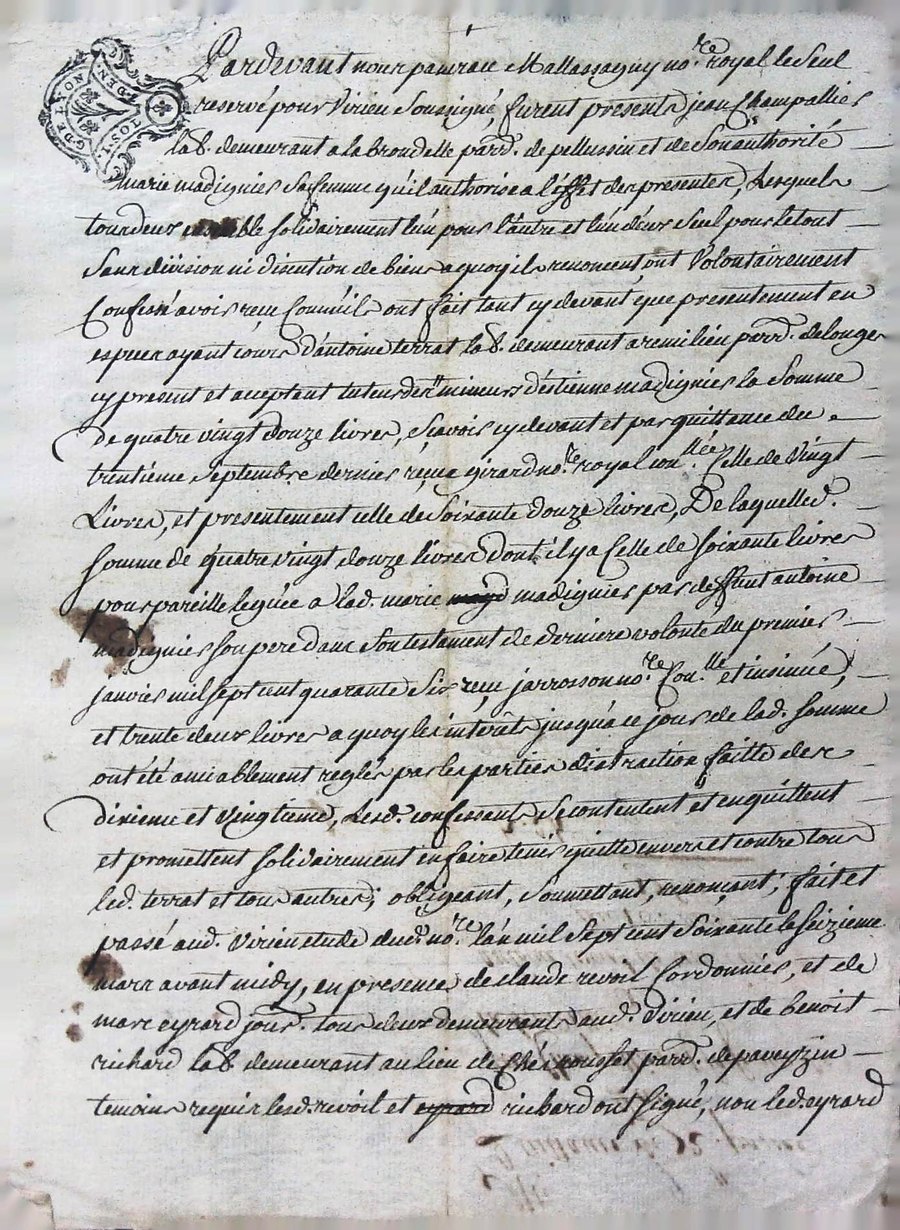 G. DE LYON
DEN.
LOS. T
Pardevant nous pancrace Mallassagny no.re royal le Seul
reservé pour Virieu Soussigné, furent presents jean Champallier
lab.r demeurant a la brondelle parr.e de pellussin et de Son authorité
marie madignier Sa femme qu'il authorise a l'effet des presentes, Lesquels
tous deux solidairement l'un pour l'autre et l'un d'eux Seul pour le tout
Sans division ni discution de biens a quoy ils renoncent, ont Volontairement
Confessé avoir reçu Comme ils ont fait tant cy devant que presentement en
especes ayant cours d'antoine terrat lab.r demeurant a remilieu parr.e de longes
cy present et acceptant tuteur des mineurs d'estienne madignier la Somme
de quatre vingt douze livres, Sçavoir cy devant et par quittance du
trentieme Septembre dernier reçue girard no.re royal con.llée Celle de Vingt
Livres, et presentement celle de Soixante douze livres, De laquelle d.
Somme de quatre vingt douze livres dont il y a Celle de soixante livres
pour pareille leguée a lad. marie madignier par deffunt antoine
madignier son pere dans Son testament de derniere volonté du premier
janvier mil sept cent quarante Six reçu jarrosson no.re Con.llé et insinué,
et trente deux livres a quoy les interêts jusqu'a ce jour de lad. Somme
ont été amiablement reglés par les parties distraction faitte des
dixieme et vingtieme, Lesd. confessants Se contentent et en quittent
et promettent solidairement en faire tenir quitte envers et contre tous
led. terrat et tous autres; obligeant, Soumettant, renonçant; fait et
passé aud. Virieu etude dud. no.re l'an mil Sept cent Soixante le seizieme
mars avant midy, en presence de claude revoil Cordonnier, et de
marc eyrard jour.r tous deux demeurants aud. Virieu, et de benoit
richard lab.r demeurant au lieu de parr.e de paveyzin
temoins requis lesd. revoil et richard ont signé, non led. eyrard